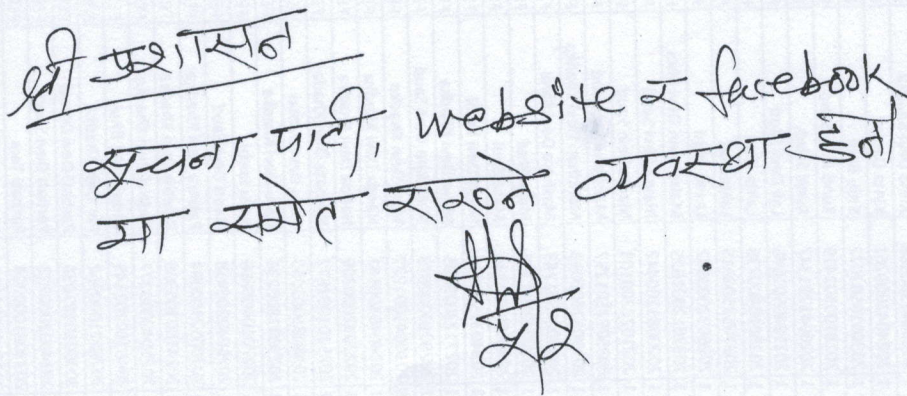 श्री प्रशासन
सूचना पाटी, website र facebook
मा समेत राख्ने व्यवस्था हुने
५/२